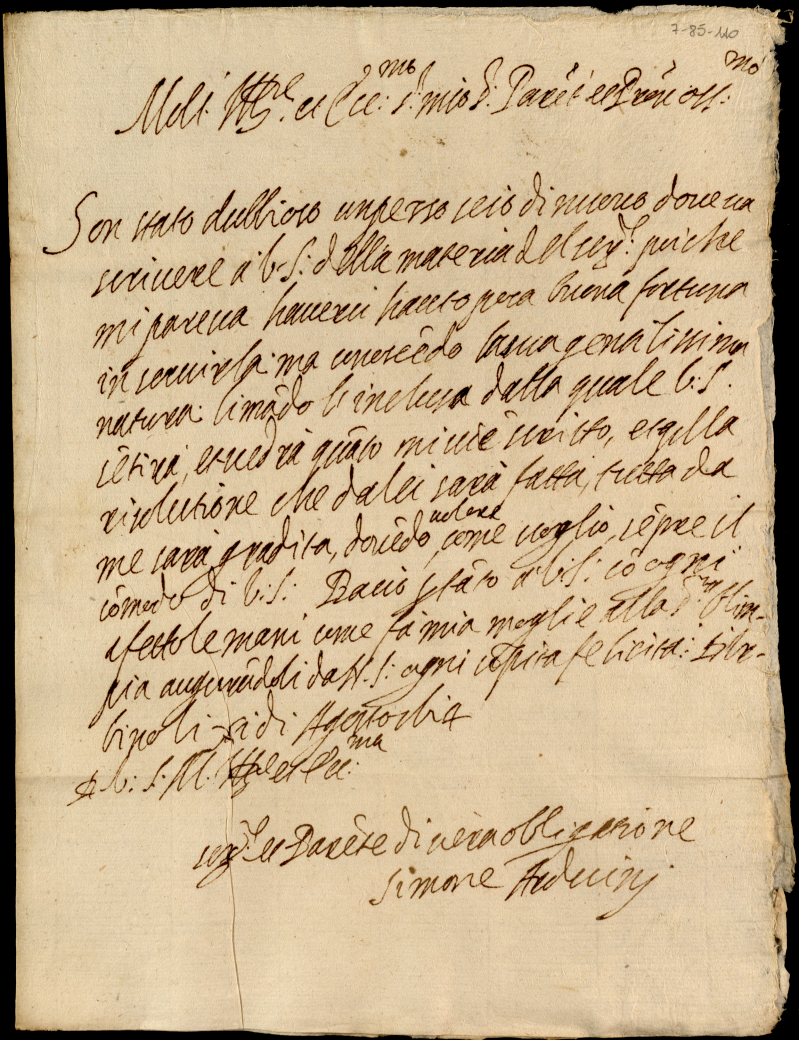 7-85-110
Molt. Ill.re et Ecc.mo S.r mio S.r Parēt et Prōn oss.mo
Son stato dubbioso un perso se io di nuovo doveva
scrivere à V.S: della materia del ser.: poiche
mi pareva haverci hauto poca buona fortuna
in servirla: ma conoscēdo la sua gentilissima
natura: li mādo l'inclusa dalla quale V.S.
sētirà, et vedrà quāto mi viē scritto, et qlla
risolutione che da lei sarà fatta, tutta da
me sarà gradita, dovēdo volere, come voglio, sēpre il
cōmodo di V.S: Bacio p tāto à V.S: cō ogni
afetto le mani come fà mia moglie alla S.ra Olim-
pia augurādoli da N.S: ogni cōpita felicità: Bibi-
li di Agosto
D V: S: M. Ill.re et Ecc.ma
ser.re et Parēte di vera obligatione
Simone Arduinj